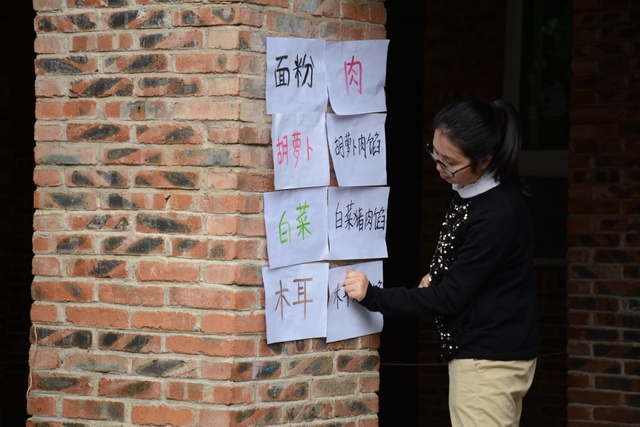 面粉
肉
胡萝卜
胡萝卜肉馅
白菜
白菜猪肉馅
木耳
木